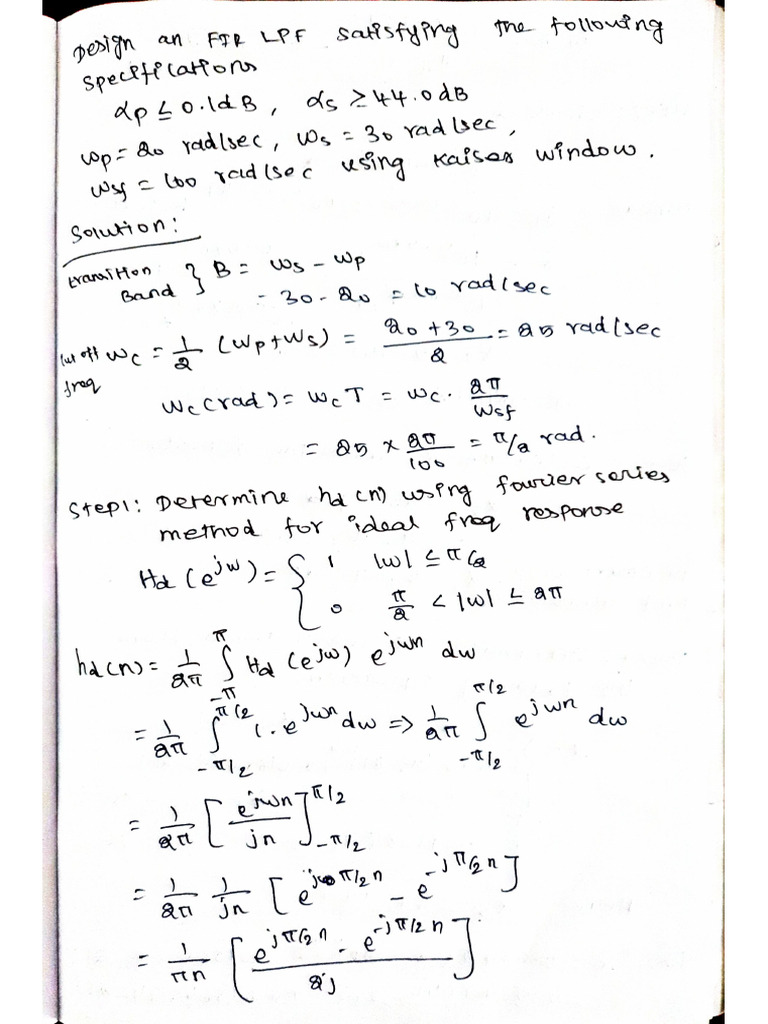 Design an FIR LPF satisfying the following
specifications
αp ≤ 0.1dB, αs ≥ 44.0 dB
ωp = 20 rad/sec, ωs = 30 rad/sec,
ωsf = 100 rad/sec using Kaiser window.
Solution:
transition Band } B = ωs - ωp
= 30 - 20 = 10 rad/sec
cut off freq ωc = 1/2 (ωp + ωs) = (20 + 30)/2 = 25 rad/sec
ωc(rad) = ωcT = ωc . 2π/ωsf
= 25 × 2π/100 = π/2 rad.
Step1: Determine hd(n) using fourier series
method for ideal freq response
Hd(e^jω) = { 1 |ω| ≤ π/2
0 π/2 < |ω| ≤ 2π
hd(n) = 1/2π ∫_-π^π Hd(e^jω) e^jωn dω
= 1/2π ∫_-π/2^π/2 1.e^jωn dω ⇒ 1/2π ∫_-π/2^π/2 e^jωn dω
= 1/2π [e^jωn / jn]_-π/2^π/2
= 1/2π 1/jn [e^jπ/2n - e^-jπ/2n]
= 1/πn [(e^jπ/2n - e^-jπ/2n) / 2j]